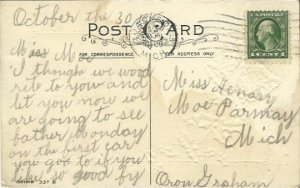 October the 30
POST CARD
FOR CORRESPONDENCE
FOR ADDRESS ONLY
MICH
U.S. POSTAGE
1 CENT 1
Miss Moe
I though we wood
rite to you and
let you now we
are going to see
father monday
on the first car
you goe to if you
like so good by
Miss
Moe Parmay
Mich
Oron Graham
Series 337 E